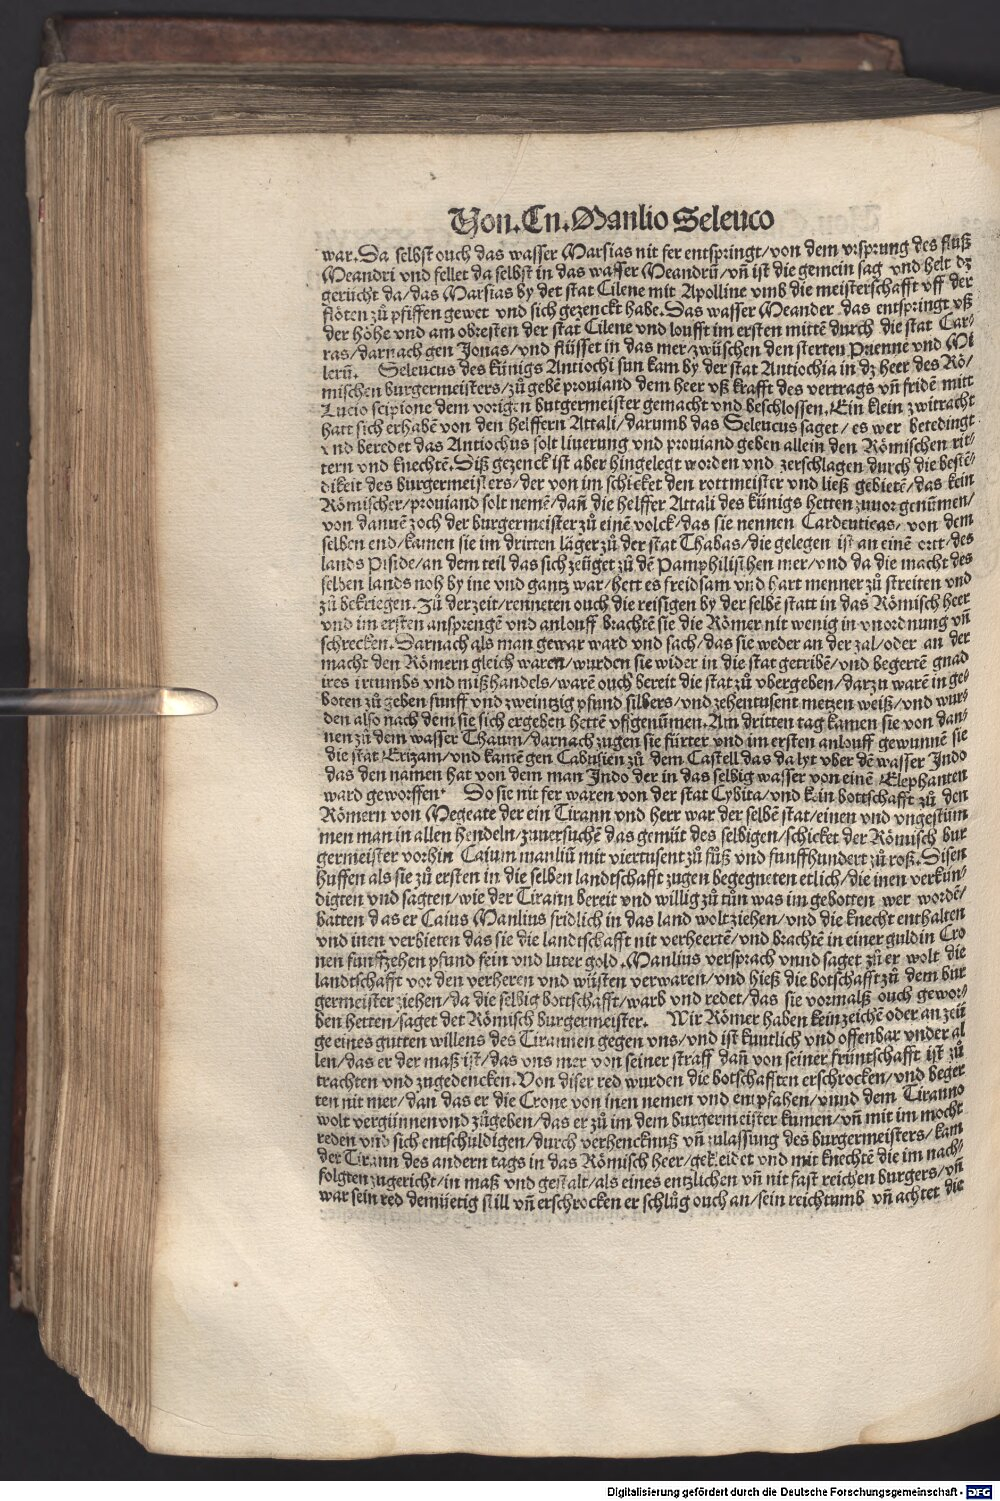 Von. Cn. Manlio Seleuco
war. Da selbst ouch das wasser Marsias nit fer entspringt/von dem vrsprung des fluß
Meandri vnd fellet da selbst in das wasser Meandrū/vñ ist die gemein sag vnd helt dz
gerücht da/das Marsias by det stat Cilene mit Apolline vmb die meisterschafft vff der
flöten zů pfiffen gewet vnd sich gezenckt habe. Das wasser Meander das entspringt vß
der höhe vnd am obresten der stat Cilene vnd loufft im ersten mittē durch die stat Car-
ras/darnach gen Jonas/vnd flüsset in das mer/zwüschen den sterten Prienne vnd Mi
lerū. Seleucus des künigs Antiochi sun kam by der stat Antiochia in dz heer des Rö-
mischen burgermeisters/zů gebē prouiand dem heer vß krafft des vertrags vñ fridē mitt
Lucio scipione dem vorigen butgermeister gemacht vnd beschlossen. Ein klein zwitracht
hatt sich erhabē von den helffern Attali/darumb das Seleucus saget/es wer betedingt
vnd beredet das Antiochus solt liuerung vnd prouiand geben allein den Römischen rit-
tern vnd knechtē. Diß gezenck ist aber hingelegt worden vnd zerschlagen durch die bestē-
dikeit des burgermeisters/der von im schicket den rottmeister vnd ließ gebietē/das kein
Römischer/prouiand solt nemē/dañ die helffer Attali des künigs hetten zuuor genūmen/
von dannē zoch der burgermeister zů einē volck/das sie nennen Cardenticas/von dem
selben end/kamen sie im dritten läger zů der stat Thabas/die gelegen ist an einē ortt/des
lands Piside/an dem teil das sich zeüget zů dē Pamphilischen mer/vnd da die macht des
selben lands noh by ine vnd gantz war/hett es freidsam vnd hart menner zů streiten vnd
zů bekriegen. Zů der zeit/renneten ouch die reisigen by der selbē statt in das Römisch heer
vnd im ersten ansprengē vnd anlouff brachtē sie die Römer nit wenig in vnordnung vñ
schrecken. Darnach als man gewar ward vnd sach/das sie weder an der zal/oder an der
macht den Römern gleich waren/wurden sie wider in die stat getribē/vnd begertē gnad
ires irtumbs vnd mißhandels/warē ouch bereit die stat zů vbergeben/darzu warē in ge-
boten zů geben funff vnd zweintzig pfund silbers/vnd zehentusent metzen weiß/vnd wur-
den also nach dem sie sich ergeben hettē vffgenūmen. Am dritten tag kamen sie von dan-
nen zů dem wasser Thaum/darnach zugen sie fürter vnd im ersten anlouff gewunnē sie
die stat Erizam/vnd kamē gen Cabusien zů dem Castell das da lyt vber dē wasser Indo
das den namen hat von dem man Indo der in das selbig wasser von einē Elephanten
ward geworffen. So sie nit fer waren von der stat Cybita/vnd kein bottschafft zů den
Römern von Megeate der ein Tirann vnd herr war der selbē stat/einen vnd vngestūm
men man in allen hendeln/zuuersuchē das gemüt des selbigen/schicket der Römisch bur
germeister vorhin Caium manliū mit viertusent zů fůß vnd funffhundert zů roß. Disen
huffen als sie zů ersten in die selben landtschafft zugen begegneten etlich/die inen verkün-
digten vnd sagten/wie der Tirann bereit vnd willig zů tůn was im gebotten wer wordē/
batten das er Caius Manlius fridlich in das land wolt ziehen/vnd die knecht enthalten
vnd inen verbieten das sie die landtschafft nit verheertē/vnd brachtē in einer guldin Cro
nen funffzehen pfund fein vnd luter gold. Manlius versprach vnnd saget zů er wolt die
landtschafft vor den verheren vnd wüsten verwaren/vnd hieß die botschafft zů dem bur
germeister ziehen/da die selbig bottschafft/warb vnd redet/das sie vormalß ouch gewor-
ben hetten/saget det Römisch burgermeister. Wir Römer haben kein zeichē oder an zeiū
ge eines gutten willens des Tirannen gegen vns/vnd ist kuntlich vnd offenbar vnder al
len/das er der maß ist/das vns mer von seiner straff dañ von seiner früntschafft ist zů
trachten vnd zugedencken. Von diser red wurden die botschafften erschrocken/vnd beger
ten nit mer/dan das er die Crone von inen nemen vnd entpfahen/vnnd dem Tiranno
wolt vergünnen vnd zůgeben/das er zů im dem burgermeister kumen/vñ mit im mocht
reden vnd sich entschuldigen/durch verhencknuß vñ zulassung des burgermeisters/kam
der Tirann des andern tags in das Römisch heer/gekleidet vnd mit knechtē die im nach-
folgten zugericht/in maß vnd gestalt/als eines entzlichen vñ nit fast reichen burgers/vñ
war sein red demüetig still vñ erschrocken er schlůg ouch an/sein reichtumb vñ achtet die
Digitalisierung gefördert durch die Deutsche Forschungsgemeinschaft - DFG